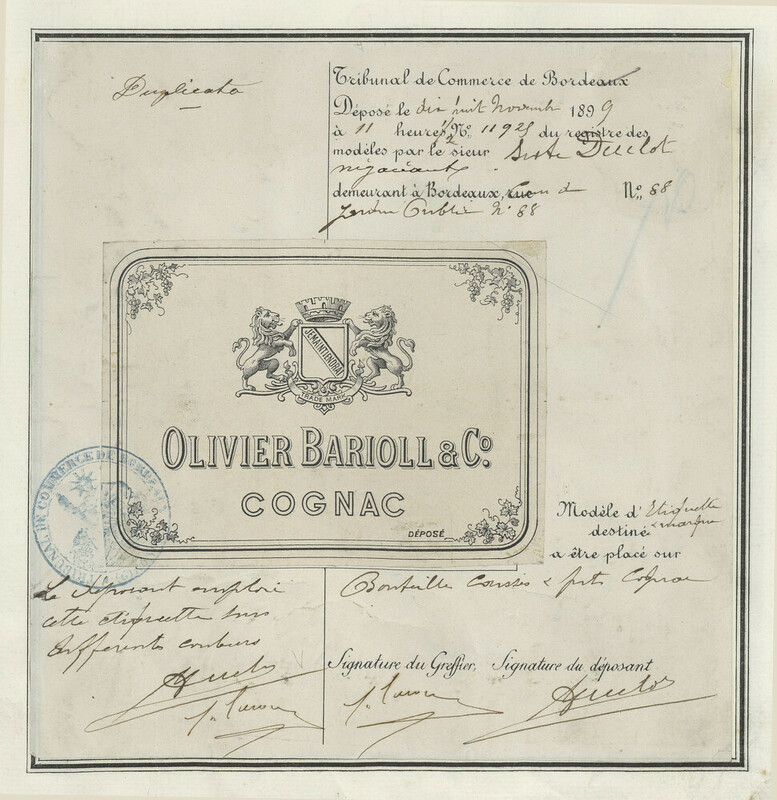 Duplicata
Tribunal de Commerce de Bordeaux
Déposé le dix huit Novembre 1899
à 11 heures 1/2 No. 11925 du registre des
modèles par le sieur Duclot
négociant
demeurant à Bordeaux, rue No. 88
Jardin Public No 88
JE MAINTIENDRAI
TRADE MARK
OLIVIER BARIOLL & Co.
COGNAC
DÉPOSÉ
TRIBUNAL DE COMMERCE DE BORDEAUX
Modèle d'Etiquette
destiné & marque
a être placé sur
Bouteilles caisses & futs Cognac
Le déposant emploie
cette étiquette sur
différentes couleurs
Signature du Greffier. Signature du déposant
Duclot
Duclot